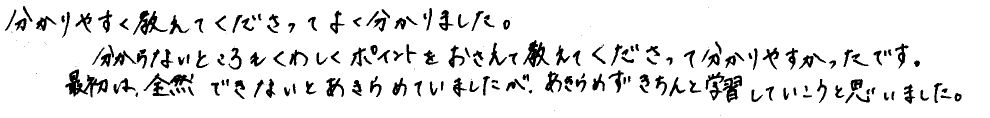 分かりやすく教えてくださってよく分かりました。
分からないところもくわしくポイントをおさえて教えてくださって分かりやすかったです。
最初は、全然できないとあきらめていましたが、あきらめずきちんと学習していこうと思いました。